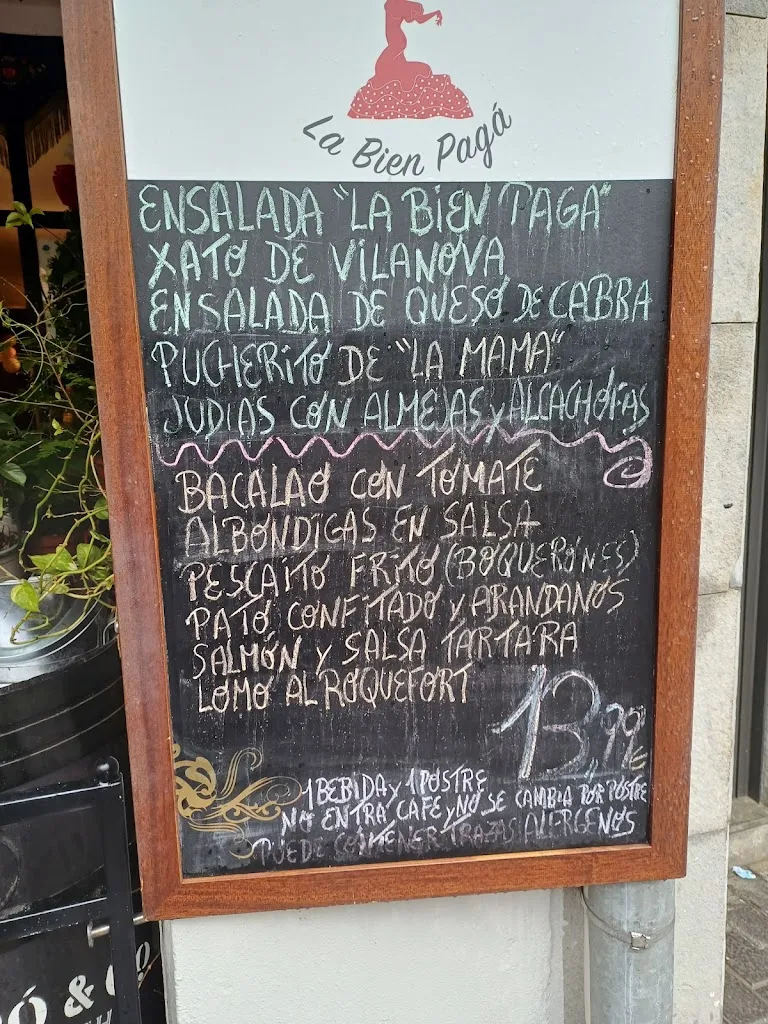 La Bien Pagá
ENSALADA "LA BIEN PAGA"
XATO DE VILANOVA
ENSALADA DE QUESO DE CABRA
PUCHERITO DE "LA MAMA"
JUDIAS CON ALMEJAS y ALCACHOFAS
BACALAO CON TOMATE
ALBONDIGAS EN SALSA
PESCAITO FRITO (BOQUERONES)
PATO CONFITADO y ARANDANOS
SALMÓN y SALSA TÁRTARA
LOMO AL ROQUEFORT
13,99€
1 BEBIDA y 1 POSTRE
NO ENTRA CAFE y NO SE CAMBIA POR POSTRE
PUEDE CONTENER TRAZAS ALERGENOS
Ó & C